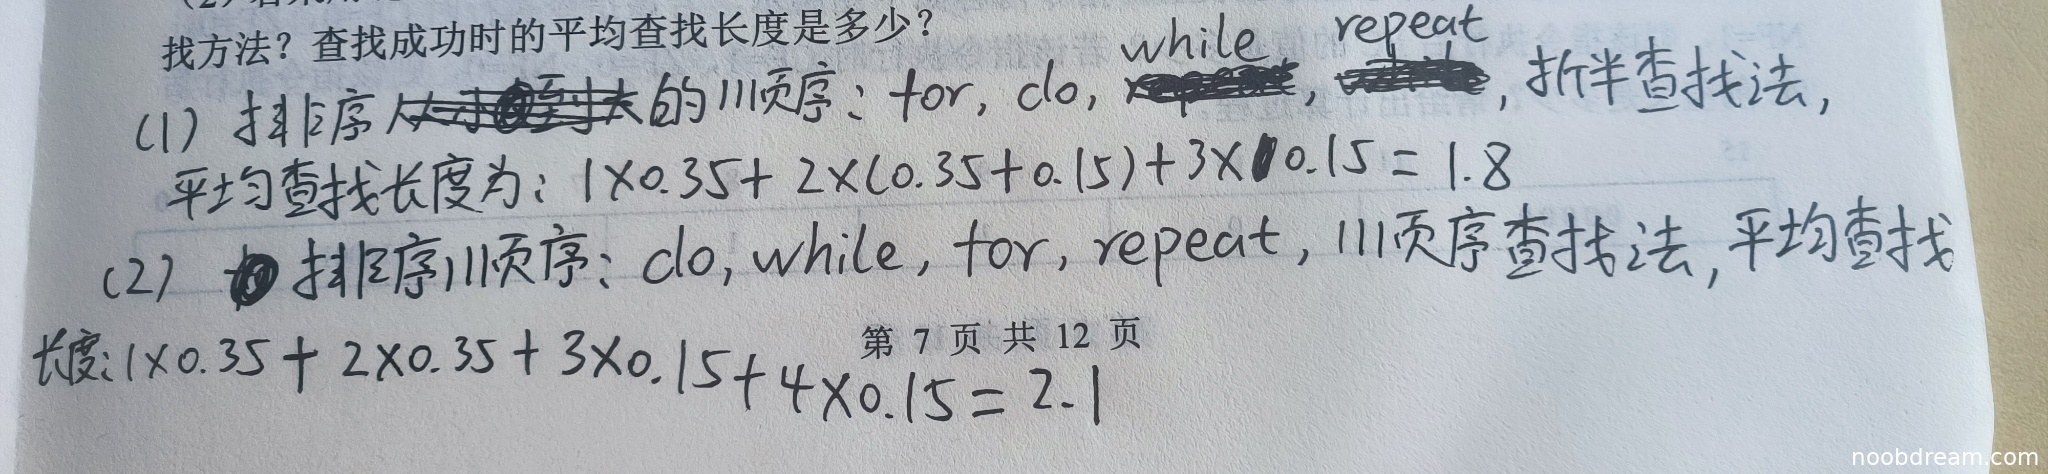 找方法？查找成功时的平均查找长度是多少？
while repeat
(1) 排序的顺序：for, do, , , 折半查找法,
平均查找长度为：1×0.35+2×(0.35+0.15)+3×0.15=1.8
(2) 排序顺序：do, while, for, repeat, 顺序查找法, 平均查找
第 7 页 共 12 页
长度：1×0.35+2×0.35+3×0.15+4×0.15=2.1
noobdream.com